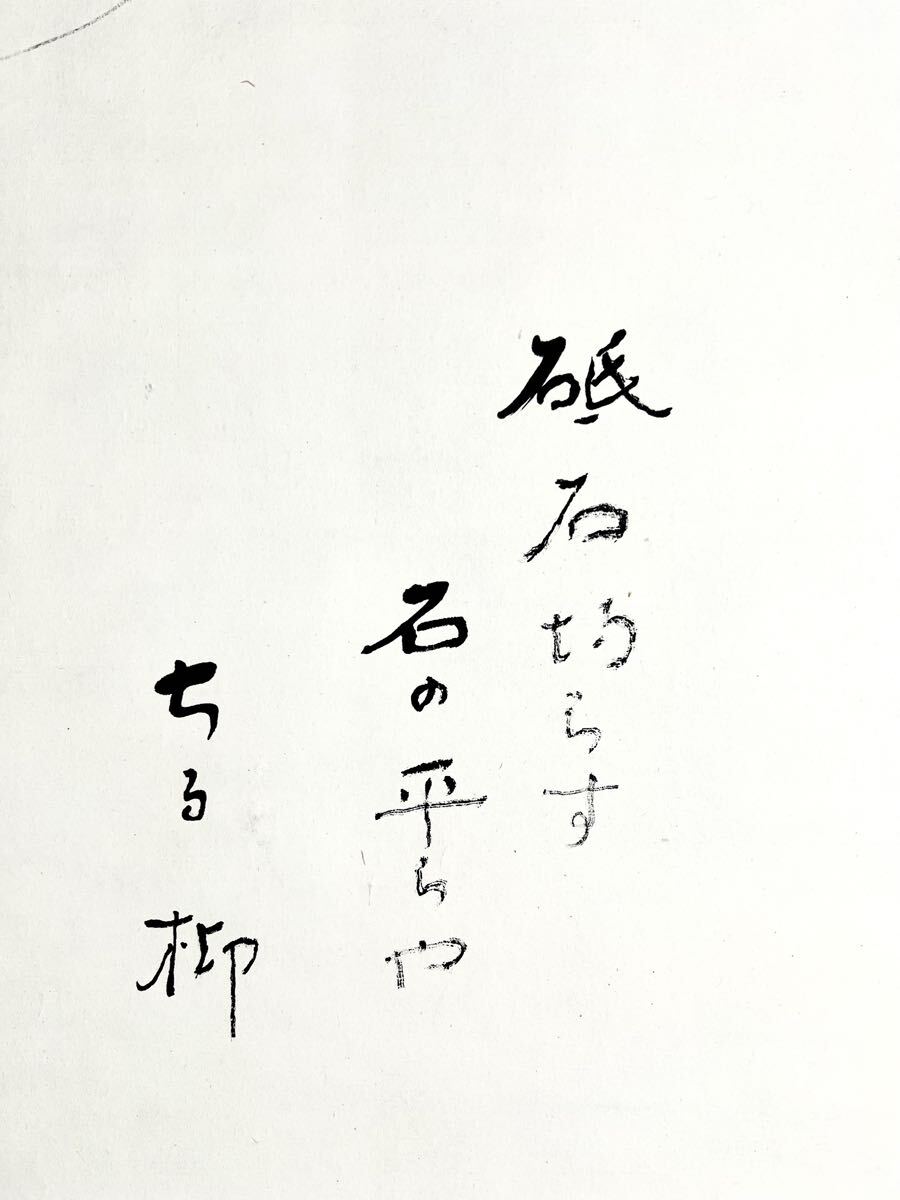 砥石均らす
石の平らや
ちる柳